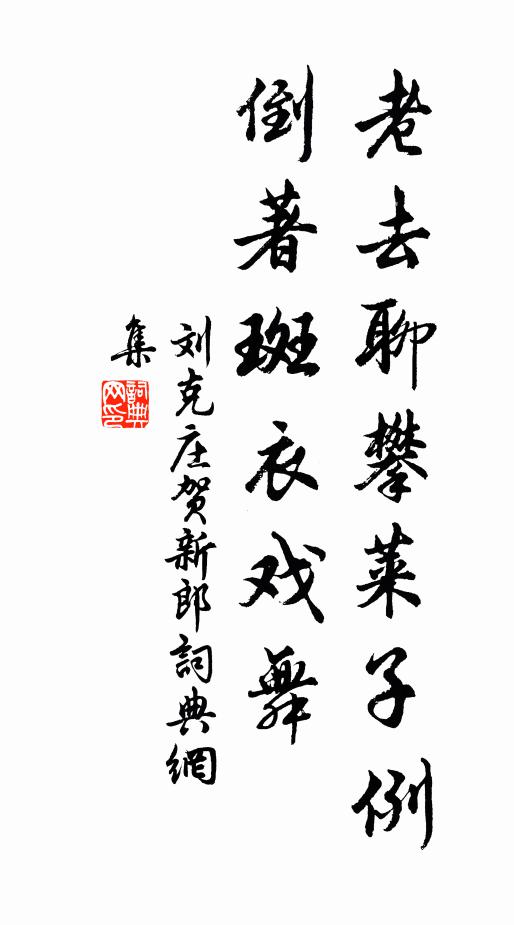 老去聊攀莱子例
倒著斑衣戏舞
刘克庄贺新郎詞典網
集
詞典网印